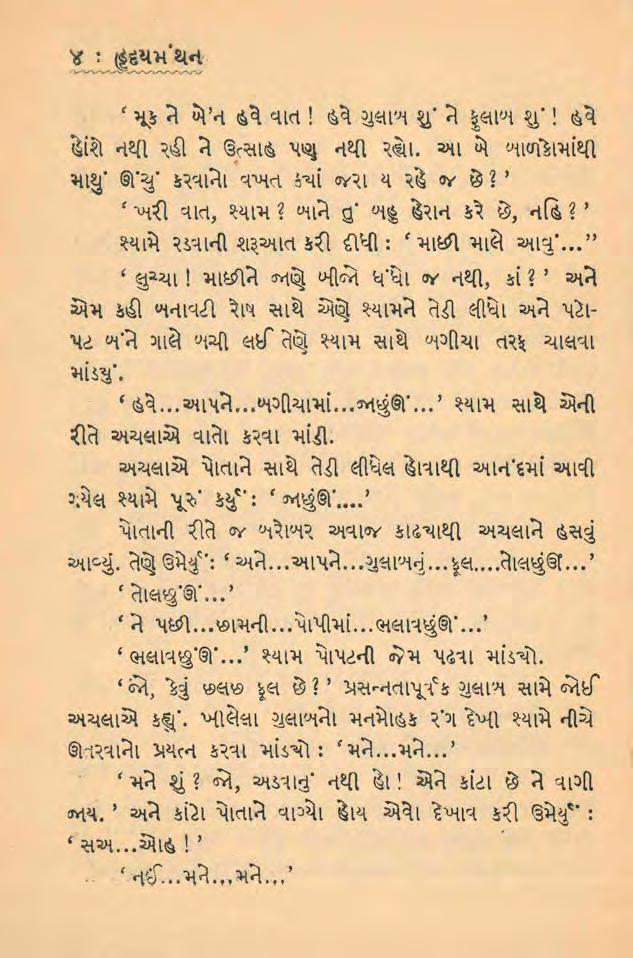 ૪ : હૃદયમંથન
‘ મૂક ને બે’ન હવે વાત ! હવે ગુલાબ શું ને ફુલાબ શું ! હવે
હોંશે નથી રહી ને ઉત્સાહ પણ નથી રહ્યો. આ બે બાળકોમાંથી
માથું ઊંચું કરવાનો વખત કયાં જરા ય રહે જ છે ? ’
‘ ખરી વાત, શ્યામ ? બાને તું બહુ હેરાન કરે છે, નહિ ? ’
શ્યામે રડવાની શરૂઆત કરી દીધી : ‘ માછી માલે આવુ'...”
‘ લુચ્યા ! માછીને જાણે બીજો ધંધો જ નથી, કાં ? ’ અને
એમ કહી બનાવટી રોષ સાથે એણે શ્યામને તેડી લીધો અને પટો-
પટ બંને ગાલે બચી લઈ તેણે શ્યામ સાથે બગીચા તરફ ચાલવા
માંડયું.
‘ હવે...આપને...બગીચામાં...જાછુંઊં...’ શ્યામ સાથે એની
રીતે અચલાએ વાતો કરવા માંડી.
અચલાએ પોતાને સાથે તેડી લીધેલ હોવાથી આનંદમાં આવી
ગયેલ શ્યામે પૂરું કર્યું : ‘ જાછુંઊં....’
પોતાની રીતે જ બરોબર અવાજ કાઢયાથી અચલાને હસવું
આવ્યું. તેણે ઉમેર્યું : ‘ અને...આપને...ગુલાબનું...ફૂલ....તોલછુંઊં...’
‘ તોલછુંઊં...’
‘ ને પછી...છામની...પોપીમાં...ભલાવછુંઊં...’
‘ ભલાવછુંઊં...’ શ્યામ પોપટની જેમ પઢવા માંડયો.
‘ જો, કેવું છલછ ફૂલ છે ? ’ પ્રસન્નતાપૂર્વક ગુલાબ સામે જોઈ
અચલાએ કહ્યું. ખીલેલા ગુલાબનો મનમોહક રંગ દેખી શ્યામે નીચે
ઊતરવાનો પ્રયત્ન કરવા માંડયો : ‘ મને...મને...’
‘ મને શું ? જો, અડવાનું નથી હો ! એને કાંટા છે ને વાગી
જાય. ’ અને કાંટો પોતાને વાગ્યો હોય એવો દેખાવ કરી ઉમેર્યું :
‘ સઅ...ઓહ ! ’
‘ નઈ...મને...મને...’